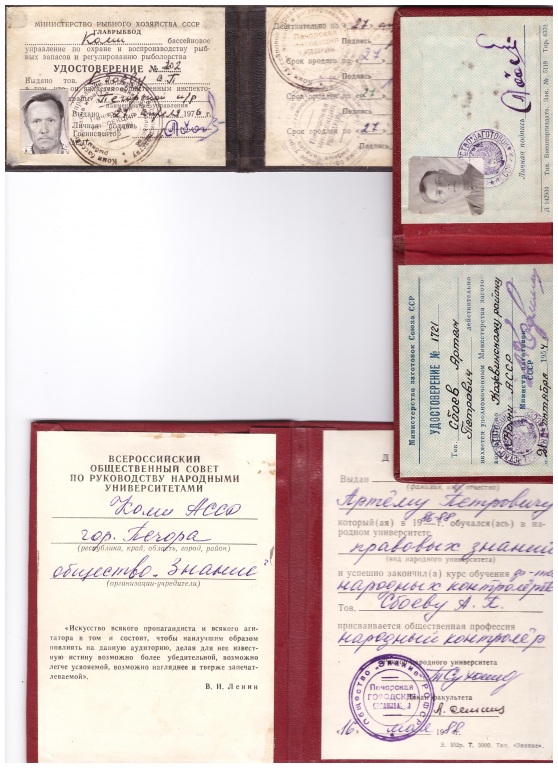 МИНИСТЕРСТВО РЫБНОГО ХОЗЯЙСТВА СССР
ГЛАВРЫБВОД
Коми бассейновое
управление по охране и воспроизводству рыб-
ных запасов и регулированию рыболовства
УДОСТОВЕРЕНИЕ № 202
Выдано тов. Сбоеву А П
в том, что он является общественным инспекто-
Выдано 27 1976 г.
Личная подпись
Госинспектор
Действительно по 27
Подпись
Срок продлен по 27
Подпись
Срок продлен по 27
Подпись
Срок продлен по 27
Подпись
Личная подпись
Министерство заготовок Союза ССР
УДОСТОВЕРЕНИЕ № 1721
Тов. Сбоев Артем
Петрович действительно
является уполномоченным Министерства загото-
Кожвинскому району
Коми АССР
Министр заготовок
СССР
21 октября 1954
ВСЕРОССИЙСКИЙ
ОБЩЕСТВЕННЫЙ СОВЕТ
ПО РУКОВОДСТВУ НАРОДНЫМИ
УНИВЕРСИТЕТАМИ
Коми АССР
гор. Печора
(республика, край, область, город, район)
общество „Знание"
(организации-учредители)
«Искусство всякого пропагандиста и всякого аги-
татора в том и состоит, чтобы наилучшим образом
повлиять на данную аудиторию, делая для нее извест-
ную истину возможно более убедительной, возможно
легче усвояемой, возможно нагляднее и тверже запечат-
леваемой».
В. И. Ленин
Д
Выдан
(фамилия, имя, отчество)
Артёму Петровичу
который(ая) в 1986-88 обучался(ась) в на-
родном университете
правовых знаний
(вид народного университета)
и успешно закончил(а) курс обучения
народных контролеров
Тов. Сбоеву А. П.
присваивается общественная профессия
народный контролёр
народного университета
Декан факультета
Общество „Знание" РСФСР
Печорская
ГОРОДСКАЯ
ОРГАНИЗАЦИЯ
16 мая 1988 г.
Т. 5000. Тип. «Знание».